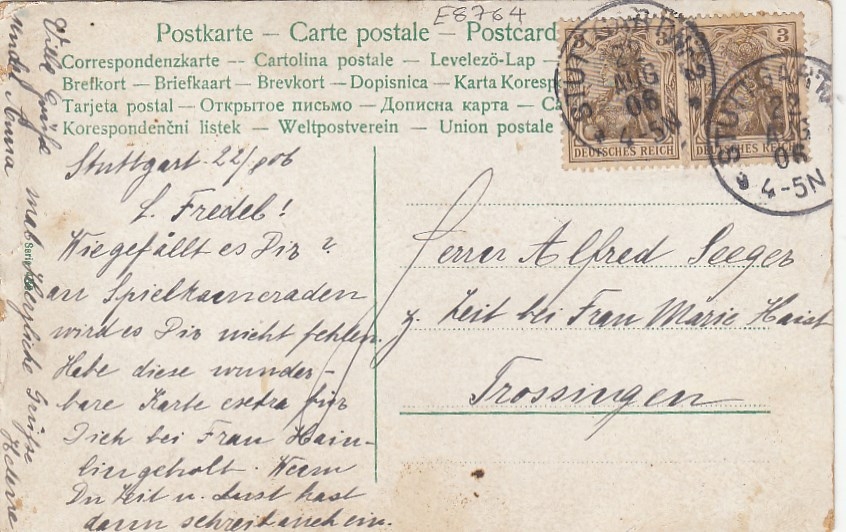 E8764
Postkarte – Carte postale – Postcard
Correspondenzkarte – Cartolina postale – Levelezö-Lap –
Brefkort – Briefkaart – Brevkort – Dopisnica – Karta Koresp
Tarjeta postal – Открытое письмо – Дописна карта – Ca
Korespondenční listek – Weltpostverein – Union postale
3
3
DEUTSCHES REICH
DEUTSCHES REICH
STUTTGART
22
AUG
06
4-5N
STUTTGART
22
AUG
06
4-5N
Stuttgart 22/
L. Fredel!
Wie gefällt es Dir?
an Spielkameraden
wird es Dir nicht fehlen.
Habe diese wunder-
bare Karte extra für
Dich bei Frau Hain-
lin geholt. Wenn
Du Zeit u. Lust hast
dann schreib auch ein-
mal herzliche Grüße
Viele Grüße
und Anna
Serie
Herrn Alfred Seeger
z. Zeit bei Frau Marie Haist
Trossingen